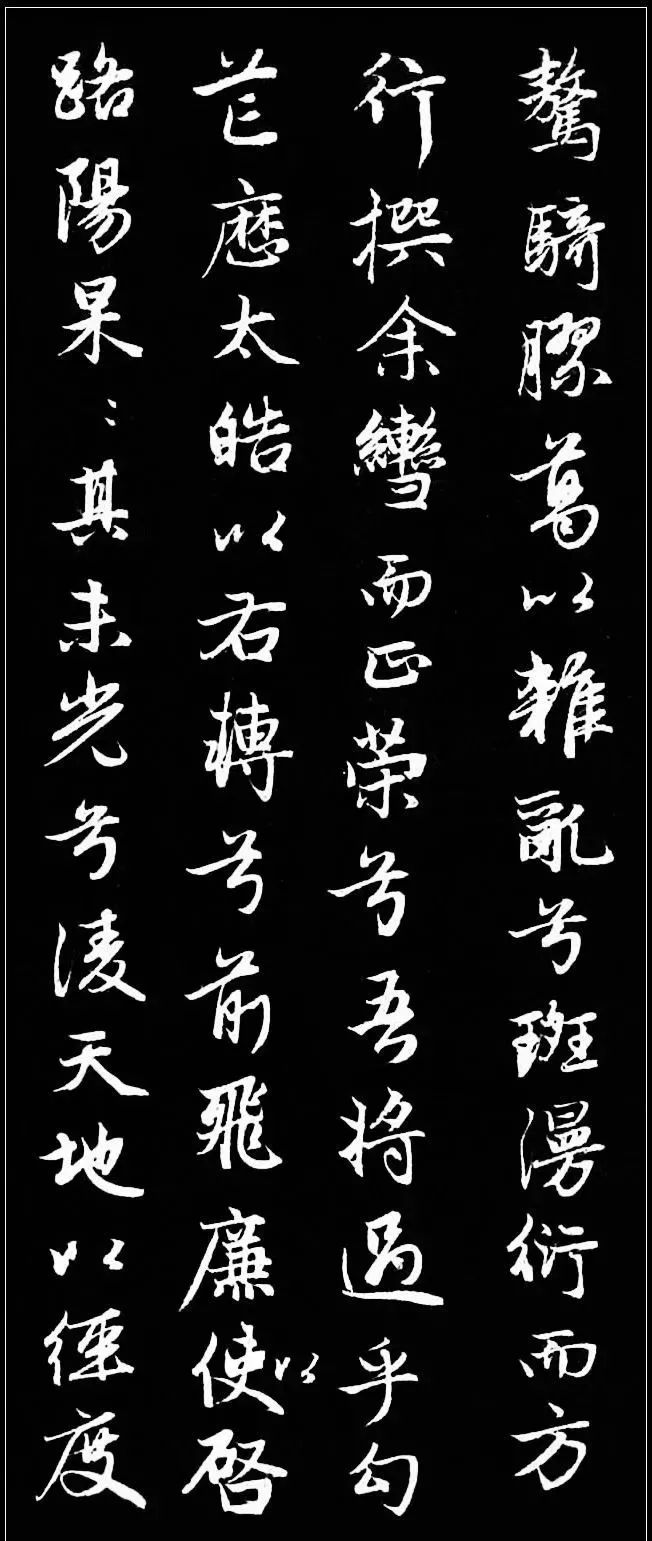 驁騎膠葛以雜亂兮班漫衍而方
行撰余轡而正榮兮吾將過乎勾
芒歷太皓以右轉兮前飛廉使以啓
路陽杲〻其未光兮淩天地以徑度